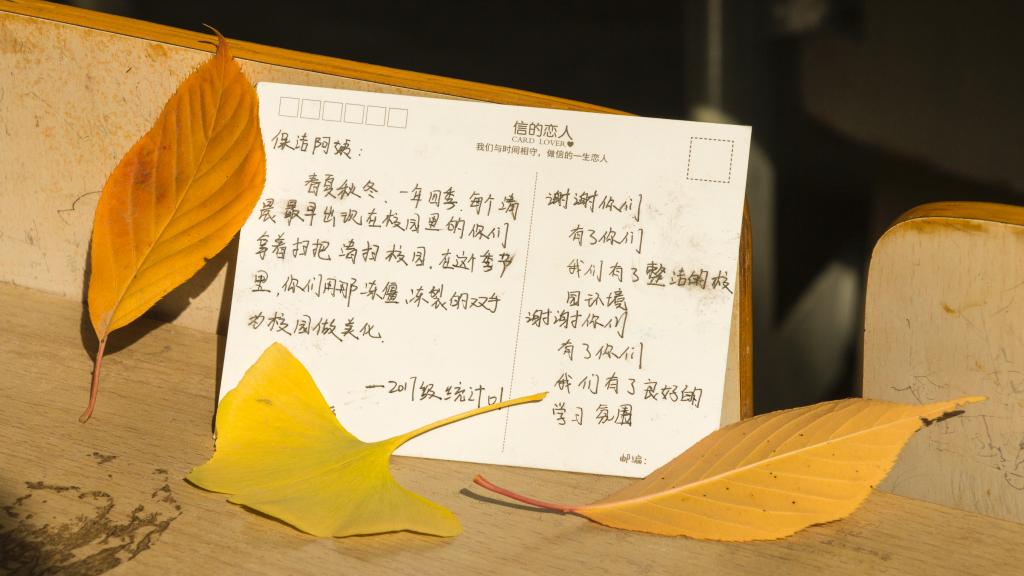 信的恋人
CARD LOVER
我们与时间相守，做信的一生恋人
保洁阿姨：
春夏秋冬、一年四季，每个清
晨最早出现在校园里的你们
拿着扫把清扫校园，在这个季节
里，你们用那冻僵、冻裂的双手
为校园做美化。
—2017级统计01
谢谢你们
有了你们
我们有了整洁的校
园环境
谢谢你们
有了你们
我们有了良好的
学习氛围
邮编：